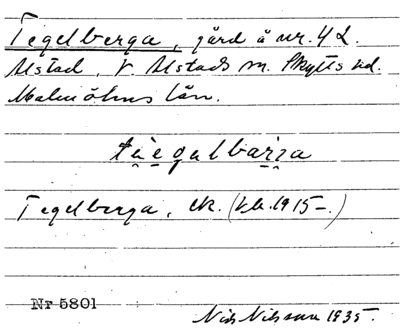 Tegelberga, gård å nr. 4 L.
Alstad, V. Alstads sn. Skytts hd.
Malmöhus län.
tèegəlbarja
Tegelberga, ek. (kb. 1915–.)
Nr 5801
Nils Nilsson 1935.